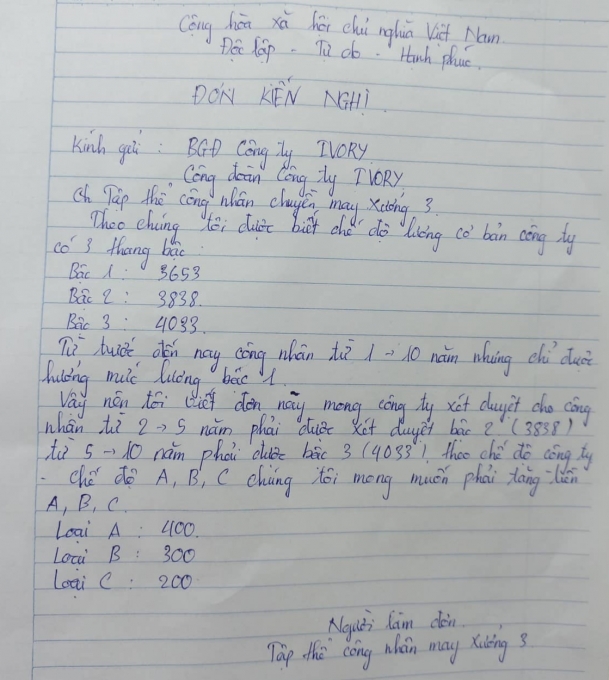 Cộng hòa xã hội chủ nghĩa Việt Nam.
Độc lập - Tự do - Hạnh phúc.
ĐƠN KIẾN NGHỊ
Kính gửi : BGĐ Công ty IVORY
Công đoàn Công ty IVORY
Tập thể công nhân chuyền may xưởng 3.
Theo chúng tôi được biết chế độ lương cơ bản công ty
có 3 thang bậc :
Bậc 1 : 3653
Bậc 2 : 3838.
Bậc 3 : 4033.
Từ trước đến nay công nhân từ 1 → 10 năm nhưng chỉ được
hưởng mức lương bậc 1.
Vậy nên tôi viết đơn này mong công ty xét duyệt cho công
nhân từ 2 → 5 năm phải được xét duyệt bậc 2 (3838)
từ 5 → 10 năm phải được bậc 3 (4033) theo chế độ công ty
- Chế độ A, B, C chúng tôi mong muốn phải tăng tiền
A, B, C.
Loại A : 400.
Loại B : 300
Loại C : 200
Người làm đơn.
Tập thể công nhân may xưởng 3